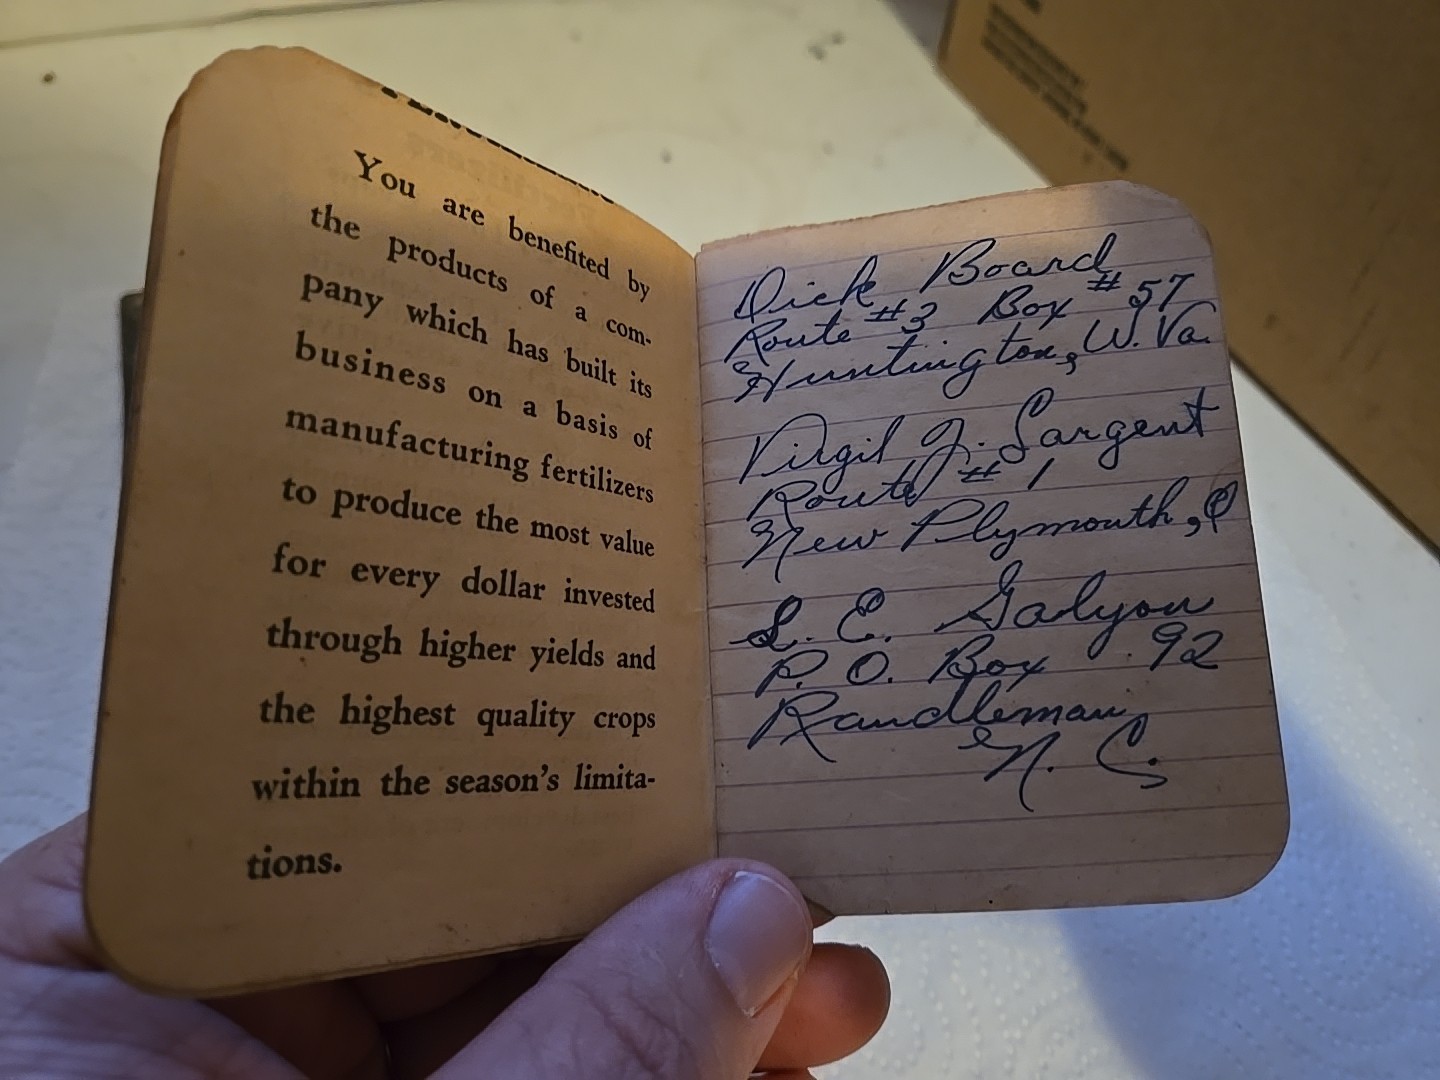 You are benefited by
the products of a com-
pany which has built its
business on a basis of
manufacturing fertilizers
to produce the most value
for every dollar invested
through higher yields and
the highest quality crops
within the season's limita-
tions.
Dick Board
Route #3 Box #57
Huntington, W. Va.
Virgil J. Sargent
Route #1
New Plymouth, O
L. E. Galyon
P. O. Box 92
Randleman,
N. C.